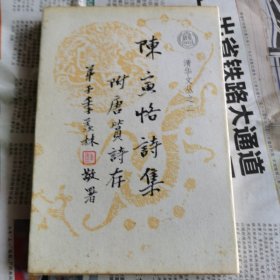 清华文丛之二
陳寅恪詩集
附唐篔詩存
弟子季羡林敬署
出省铁路大通道